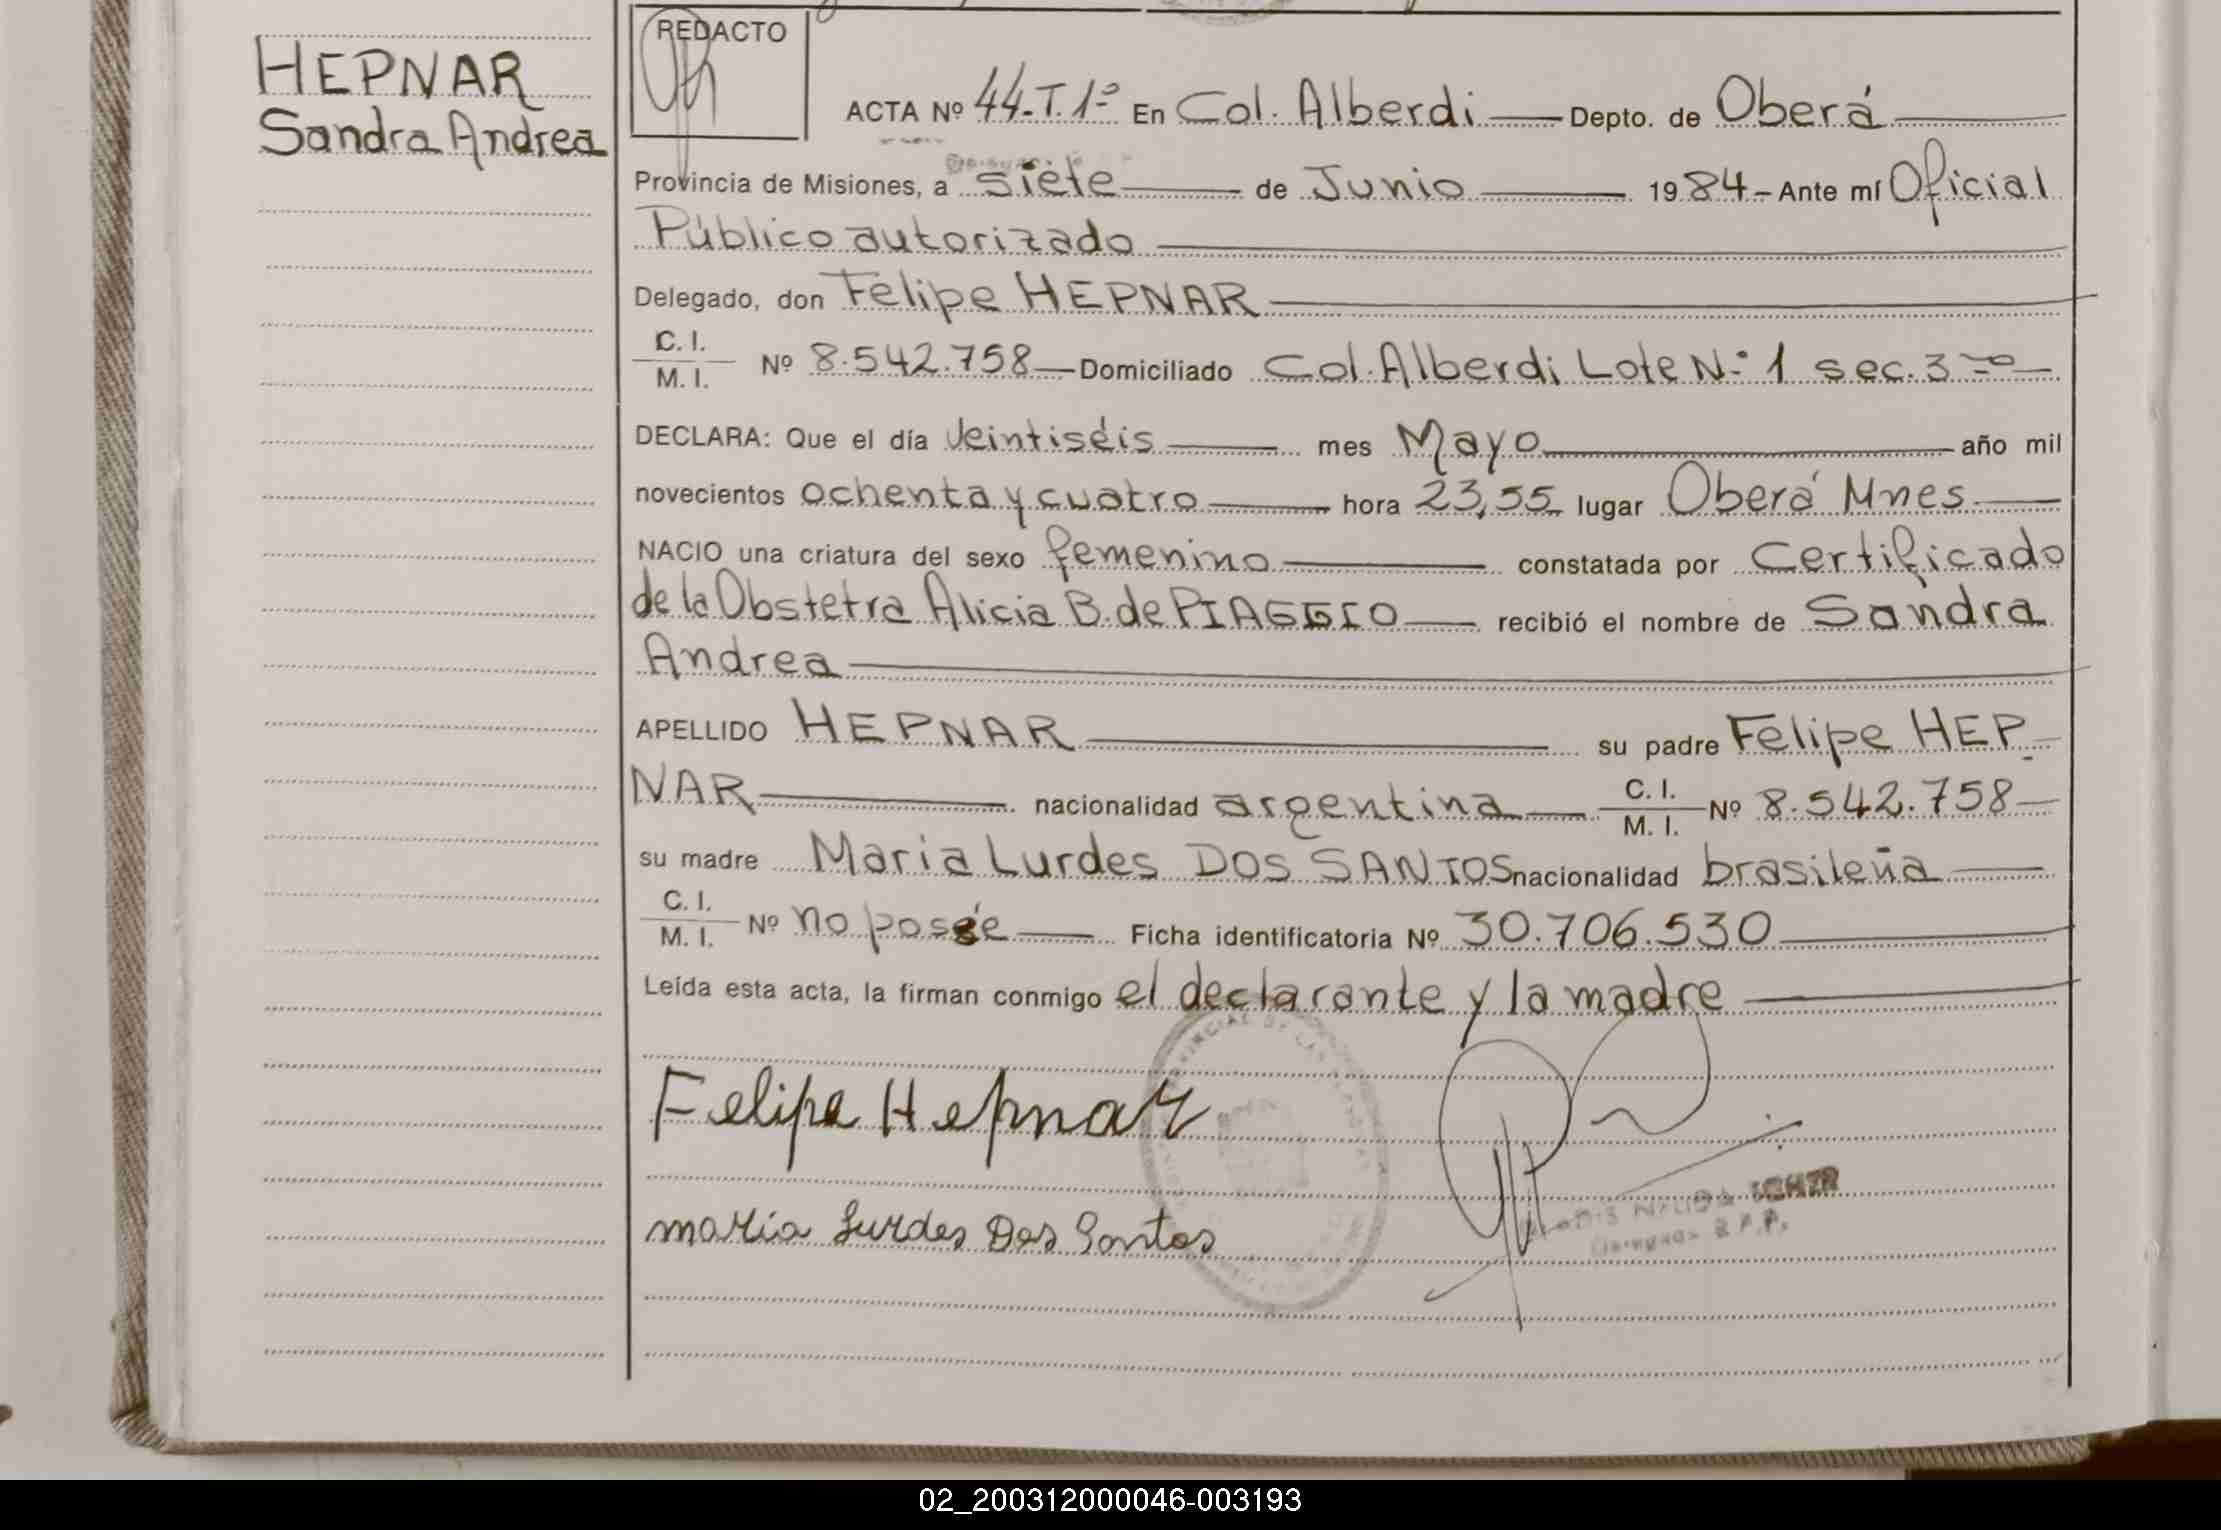 HEPNAR
Sandra Andrea
REDACTO
ACTA Nº 44-T.1º En Col. Alberdi Depto. de Oberá
Provincia de Misiones, a siete de Junio 1984- Ante mí Oficial
Público autorizado
Delegado, don Felipe HEPNAR
C. I.
M. I. Nº 8.542.758 Domiciliado Col. Alberdi Lote Nº 1 sec. 3
DECLARA: Que el día veintiséis mes Mayo año mil
novecientos ochenta y cuatro hora 23,55 lugar Oberá Mnes.
NACIO una criatura del sexo femenino constatada por Certificado
de la Obstetra Alicia B. de PIAGGIO recibió el nombre de Sandra
Andrea
APELLIDO HEPNAR su padre Felipe HEP-
NAR nacionalidad argentina C. I. M. I. Nº 8.542.758
su madre Maria Lurdes DOS SANTOS nacionalidad brasileña
C. I.
M. I. Nº no posée Ficha identificatoria Nº 30.706.530
Leída esta acta, la firman conmigo el declarante y la madre
Felipe Hepnar
maria Lurdes Dos Santos
02_200312000046-003193